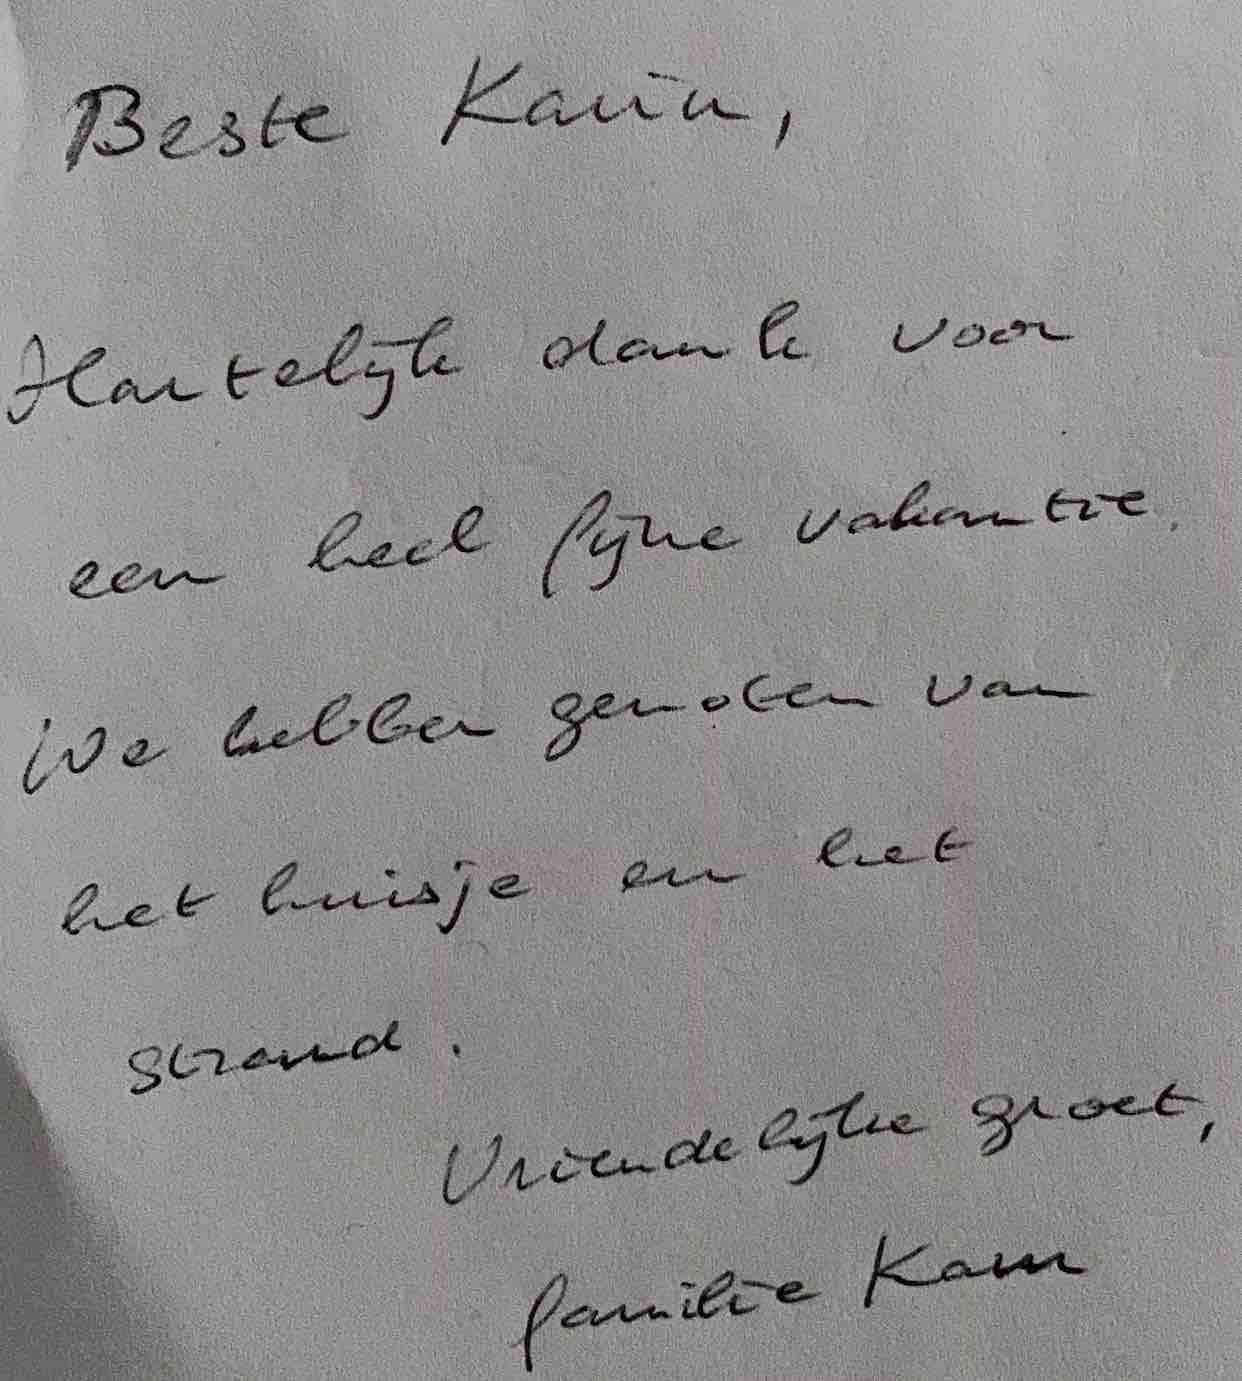 Beste Karin,
Hartelijk dank voor
een heel fijne vakantie.
We hebben genoten van
het huisje en het
strand.
Vriendelijke groet,
familie Kam